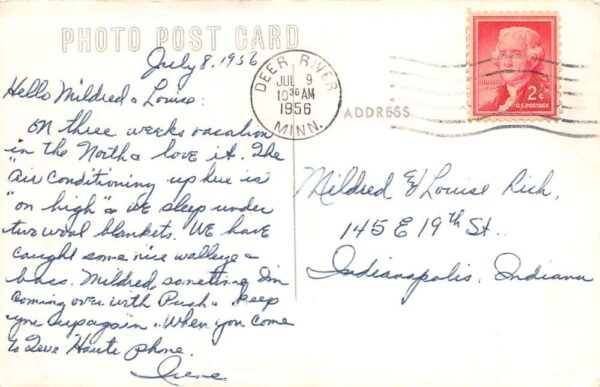 PHOTO POST CARD
July 8, 1956
DEER RIVER
JUL 9
10 30 AM
1956
MINN.
2¢
U.S. POSTAGE
ADDRESS
Hello Mildred & Louise:
On three weeks vacation
in the North & love it. The
"Air Conditioning up here is
"on high" & we sleep under
two wool blankets. We have
caught some nice walleye &
bass. Mildred, sometime I'm
coming over with Push & keep
you up again. When you come
to Terre Haute phone.
Irene
Mildred & Louise Rich,
145 E 19th St.
Indianapolis, Indiana